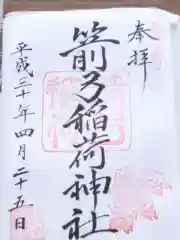 奉拝
箭弓稲荷神社
平成三十年四月二十五日